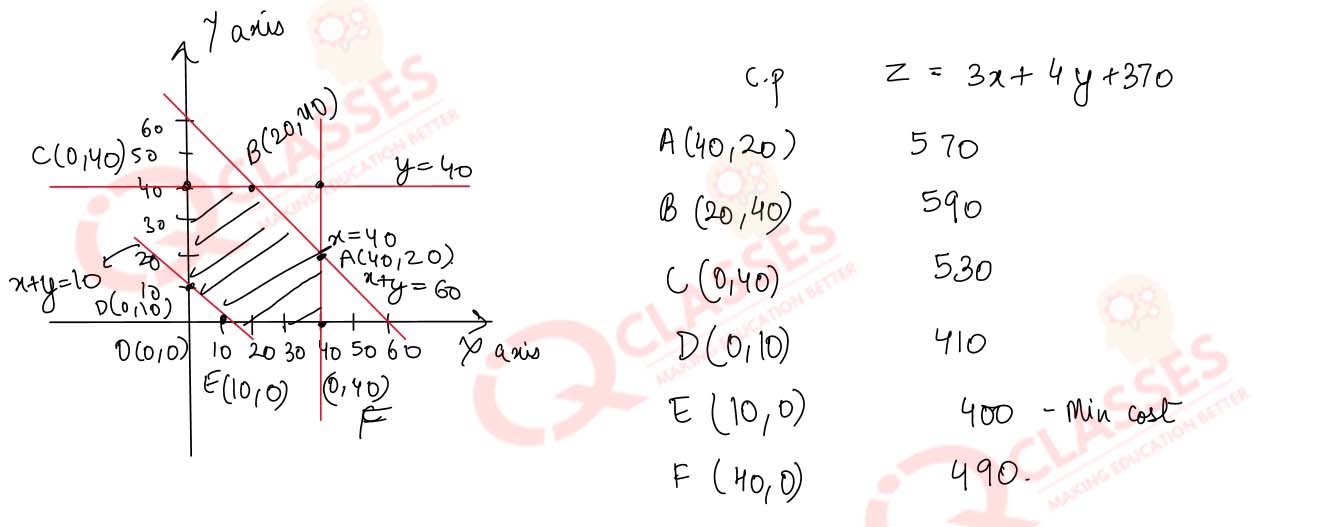 Y axis
60
C(0,40) 50
B(20,40)
40
y=40
30
x=40
20
A(40,20)
x+y=10
10
x+y=60
D(0,10)
O(0,0) 10 20 30 40 50 60 X axis
E(10,0) (0,40)
F
C.p Z = 3x+4y+370
A(40,20) 570
B (20,40) 590
C (0,40) 530
D(0,10) 410
E (10,0) 400 - Min cost
F (40,0) 490.
IQ CLASSES
MAKING EDUCATION BETTER
IQ CLASSES
MAKING EDUCATION BETTER
IQ CLASSES
MAKING EDUCATION BETTER